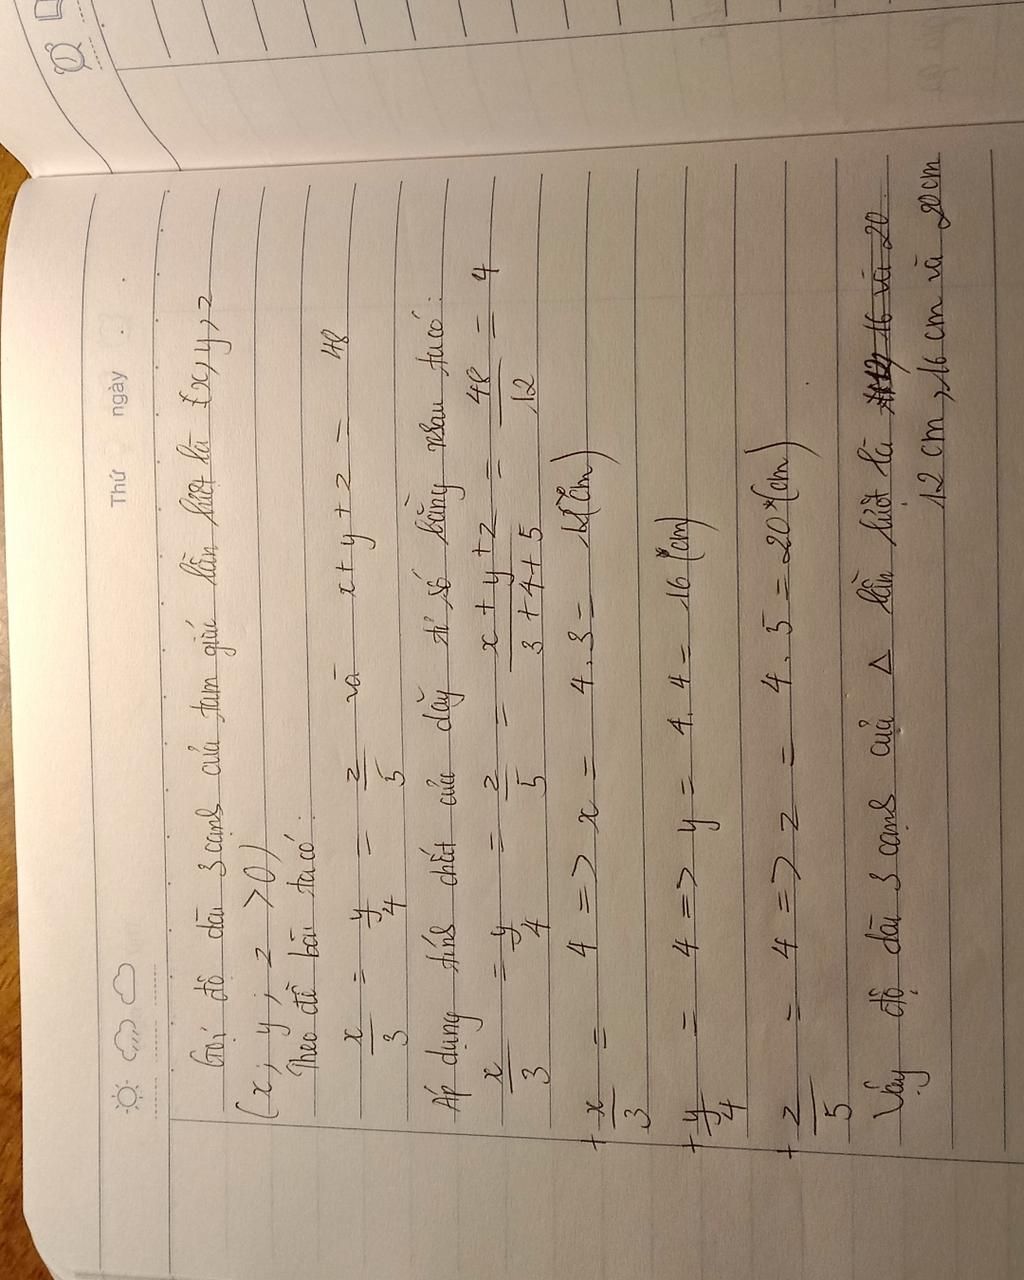 Thứ ngày
Gọi độ dài 3 cạnh của tam giác lần lượt là x, y, z
(x; y; z > 0)
Theo đề bài ta có:
x/3 = y/4 = z/5 và x + y + z = 48
Áp dụng tính chất của dãy tỉ số bằng nhau ta có:
x/3 = y/4 = z/5 = (x + y + z)/(3 + 4 + 5) = 48/12 = 4
+ x/3 = 4 => x = 4 . 3 = 12 (cm)
+ y/4 = 4 => y = 4 . 4 = 16 (cm)
+ z/5 = 4 => z = 4 . 5 = 20 (cm)
Vậy độ dài 3 cạnh của Δ lần lượt là 12, 16 và 20
12 cm, 16 cm và 20 cm